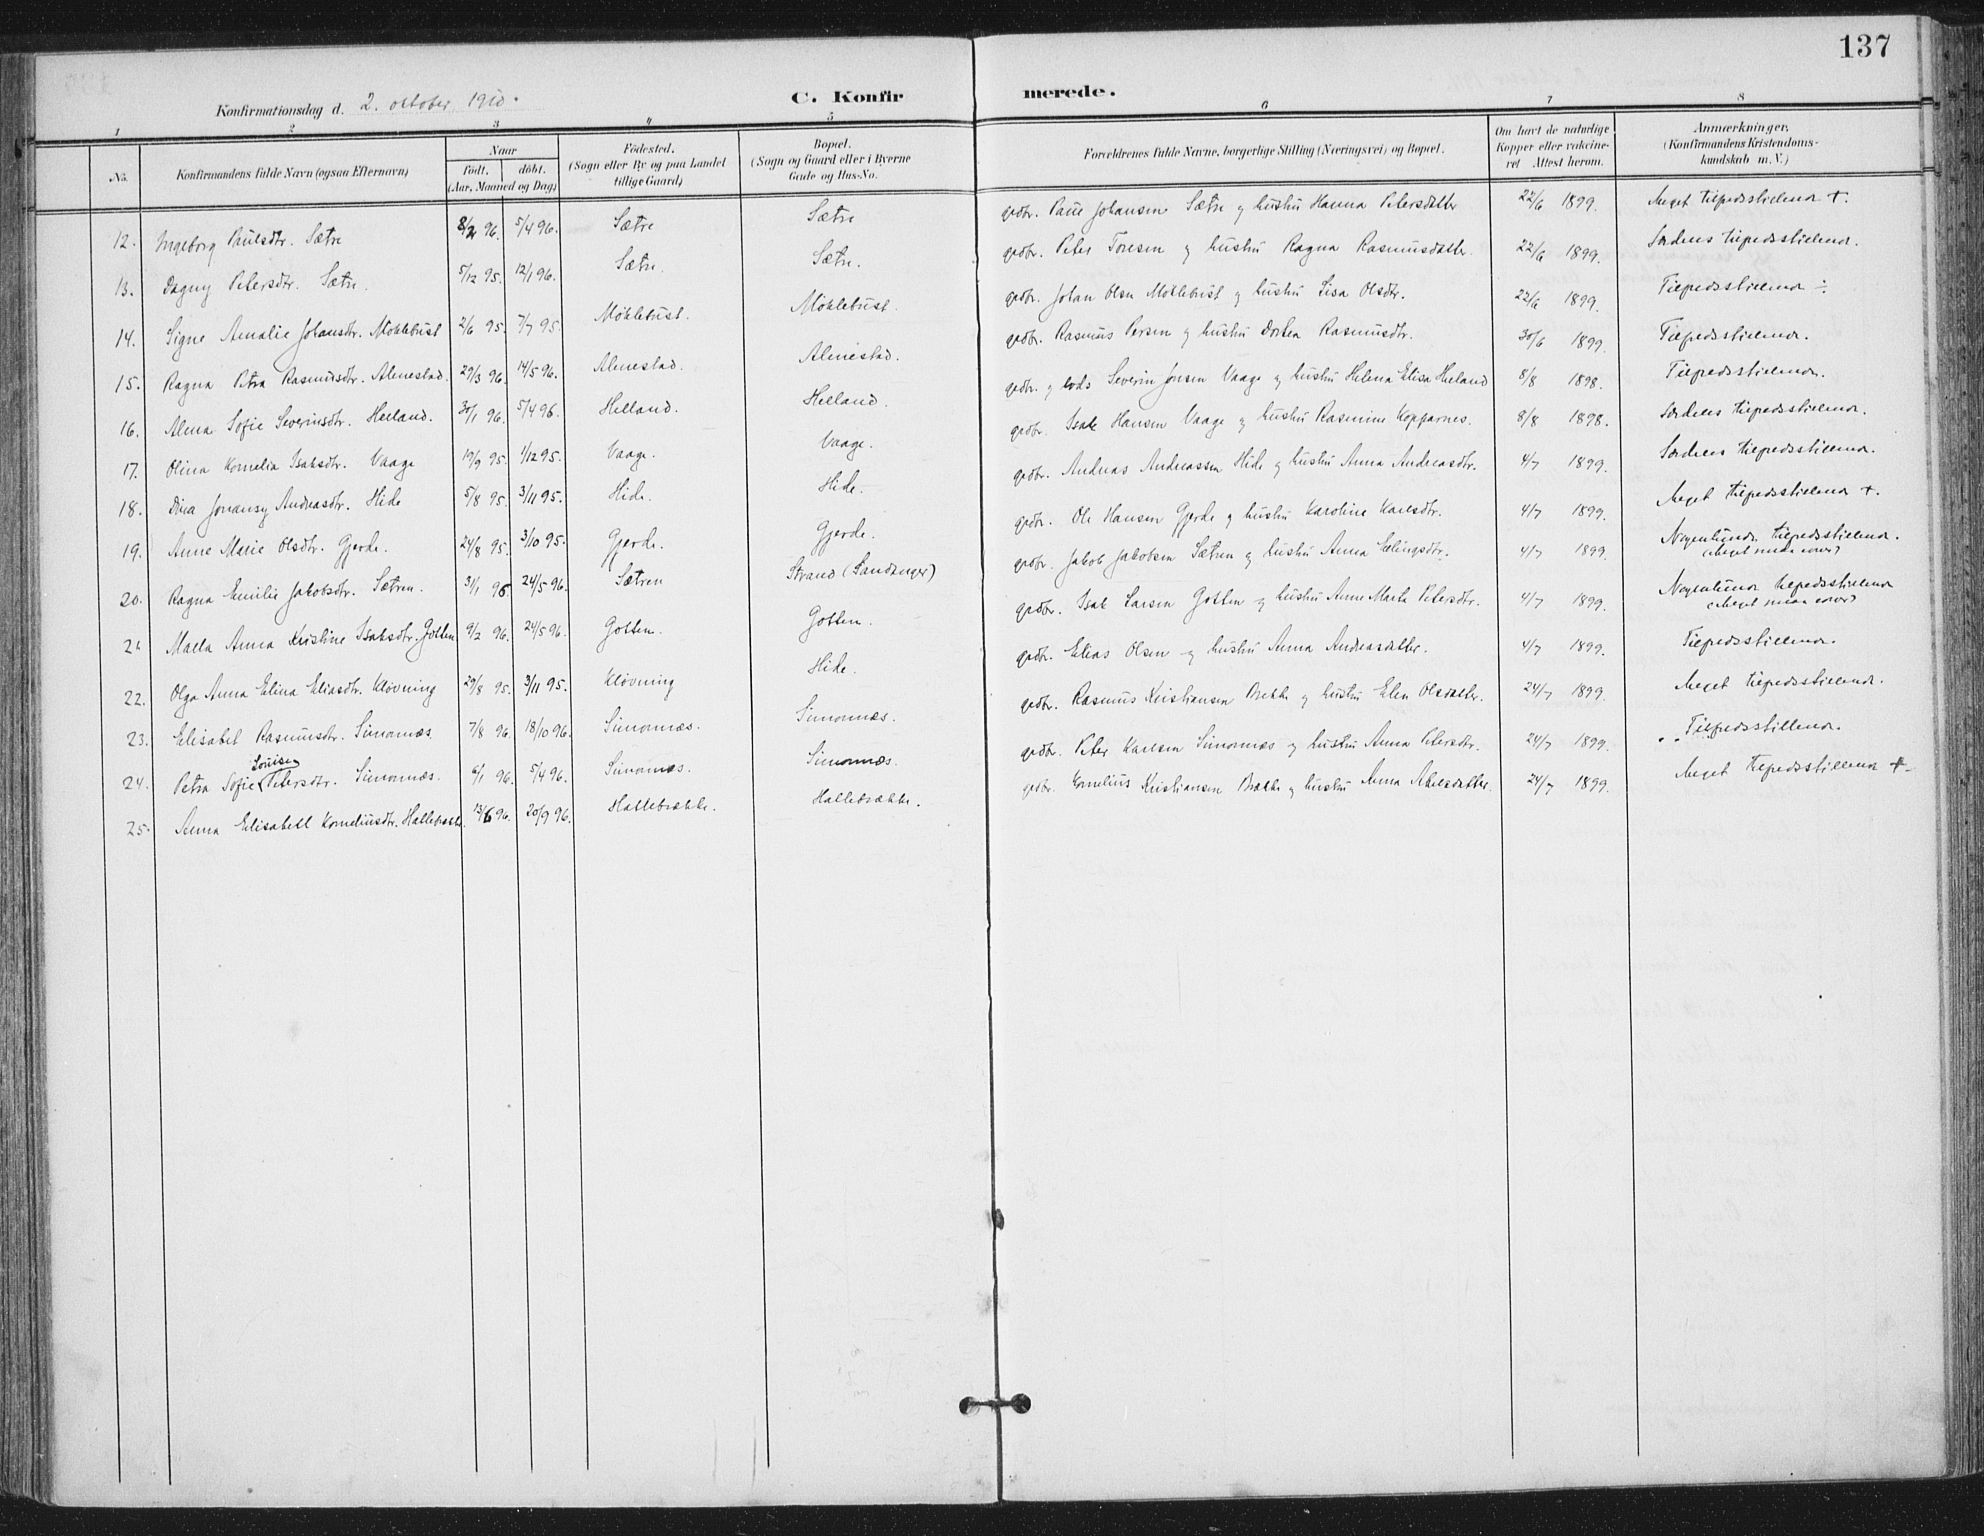 137
Konfirmationsdag d. 2. oktober 1910.
C. Konfirmerede.
1 2 3 4 5 6 7 8
No. Konfirmandens fulde Navn (ogsaa Efternavn) Naar födt. döbt. (Aar, Maaned og Dag) Födested. (Sogn eller By og paa Landet tillige Gaard) Bopæl. (Sogn og Gaard eller i Byerne Gade og Hus-No. Forældrenes fulde Navne, borgerlige Stilling (Næringsvei) og Bopæl. Om havt de naturlige Kopper eller vakcineret. Attest herom. Anmærkninger. (Konfirmandens Kristendomskundskab m. V.)
12. Ingeborg Paulsdtr. Sætre 8/2 96. 5/4 96. Sætre Sætre grdbr. Paul Johansen Sætre og hustru Hanna Petersdatter 22/6 1899. Meget tilfredsstillende +.
13. Dagny Petersdtr. Sætre. 5/12 95. 12/1 96. Sætre. Sætre. grdbr. Peter Toresen og hustru Ragna Rasmusdatter. 22/6 1899. Særdeles tilfredsstillende.
14. Signe Amalie Johansdtr. Möklebust 2/6 95. 7/7 95. Möklebust. Möklebust. grdbr. Johan Olsen Möklebust og hustru Lisa Olsdtr. 22/6 1899. Tilfredsstillende ÷
15. Ragna Petra Rasmusdtr. Alnestad. 29/3 96. 14/5 96. Alnestad. Alnestad. grdbr. Rasmus Persen og hustru Dortea Rasmusdtr. 30/6 1899. Tilfredsstillende.
16. Alma Sofie Severinsdtr. Helland. 30/1 96. 5/4 96. Helland. Helland. grdbr. og lods Severin Jonsen Vaage og hustru Helena Elisa Helland 8/8 1898. Tilfredsstillende.
17. Olina Kornelia Isaksdtr. Vaage 19/9 95. 1/12 95. Vaage. Vaage. grdbr. Isak Hansen Vaage og hustru Rasmine Kopparnes. 8/8 1898. Særdeles tilfredsstillende.
18. Dina Andreasdtr. Hide 5/8 95. 3/11 95. Hide. Hide. grdbr. Andreas Andreassen Hide og hustru Anna Andreasdtr. 4/7 1899. Særdeles tilfredsstillende.
19. Anne Marie Olsdtr. Gjerde. 24/8 95. 3/10 95. Gjerde. Gjerde. grdbr. Ole Hansen Gjerde og hustru Karoline Karlsdtr. 4/7 1899. Meget tilfredsstillende +.
20. Ragna Emilie Jakobsdtr. Sætren. 31/1 96. 24/5 96. Sætren Strand (Sandanger) grdbr. Jakob Jakobsen Sætren og hustru Anna Erlingsdtr. 4/7 1899. Nogenlunde tilfredsstillende.
21 Marta Anna Kristine Isaksdtr. Gotten 9/2 96. 24/5 96. Gotten. Gotten. grdbr. Isak Larsen Gotten og hustru Anne Marta Petersdtr. 4/7 1899. Nogenlunde tilfredsstillende
22. Olga Anna Elina Eliasdtr. Klövning 29/8 95. 3/11 95. Klövning Hide. grdbr. Elias Olsen og hustru Anna Andreasdatter. 4/7 1899. Tilfredsstillende.
23. Elisabet Rasmusdtr. Simonnæs. 7/8 96. 18/10 96. Simonnæs. Simonnæs. grdbr. Rasmus Kristiansen Brekke og hustru Elen Olsdatter. 24/7 1899. Meget tilfredsstillende.
24. Petra Sofie Louise Petersdtr. Simonnæs. 6/1 96. 5/4 96. Simonnæs. Simonnæs. grdbr. Peter Karlsen Simonnæs og hustru Anna Petersdtr. 24/7 1899. Tilfredsstillende.
25. Anna Elisabell Korneliusdtr. Hallebrække. 13/6 96. 20/9 96. Hallebrække. Hallebrække. grdbr. Kornelius Kristiansen Brække og hustru Anna Akselsdatter. 24/7 1899. Meget tilfredsstillende +